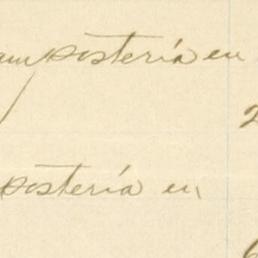 ampostería en
2
postería en
6